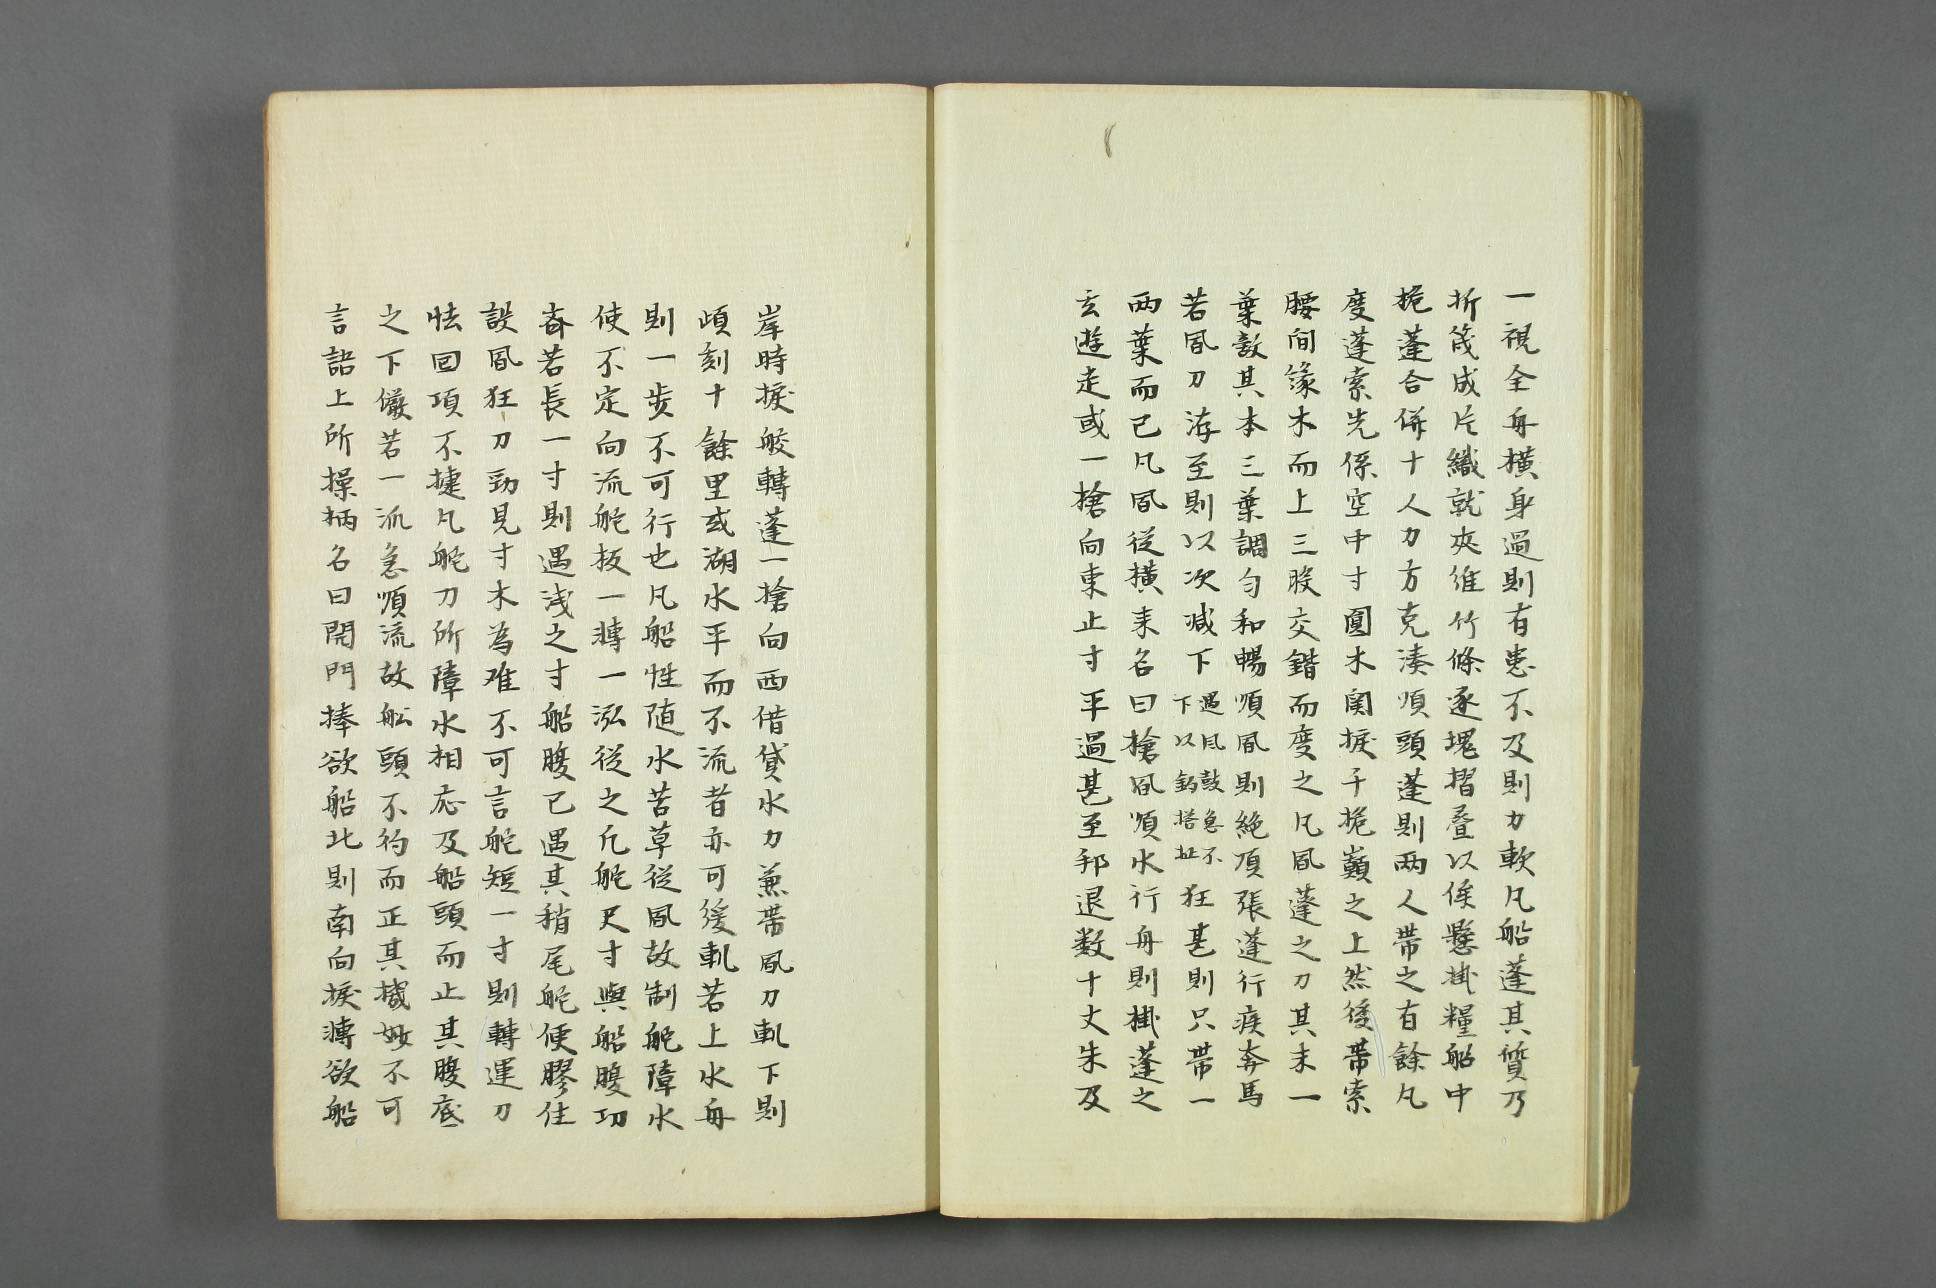 一視全舟橫身過則有患不及則力軟凡船蓬其質乃
折篾成片織就夾維竹條逐塊摺疊以俟懸掛糧船中
桅蓬合併十人力方克湊順頭蓬則两人帶之有餘凡
度蓬索先係空中寸圓木関捩于桅巔之上然後帶索
腰间緣木而上三股交錯而度之凡風蓬之刀其末一
葉敵其本三葉調匀和暢順風則絶頂張蓬行疾奔馬
若風刀洊至則以次減下遇风鼓急不下以鈎搭扯狂甚則只帶一
两葉而已凡風從橫来名曰搶風順水行舟則掛蓬之
玄遊走或一搶向東止寸平過甚至却退数十丈朱及
岸時捩舵轉蓬一搶向西借貸水力兼帶風刀軋下則
頃刻十餘里或湖水平而不流者亦可緩軋若上水舟
則一步不可行也凡船性随水若草從風故制舵障水
使不定向流舵扳一轉一泓從之凡舵尺寸與船腹切
斉若長一寸則遇浅之寸船腹已遇其稍尾舵便膠住
設風狂刀勁見寸木為难不可言舵短一寸則轉運刀
怯回項不㨗凡舵刀所障水相応及船頭而止其腹底
之下儼若一派急順流故舩頭不約而正其機妙不可
言語上所操柄名曰関門捧欲船北則南向捩轉欲船